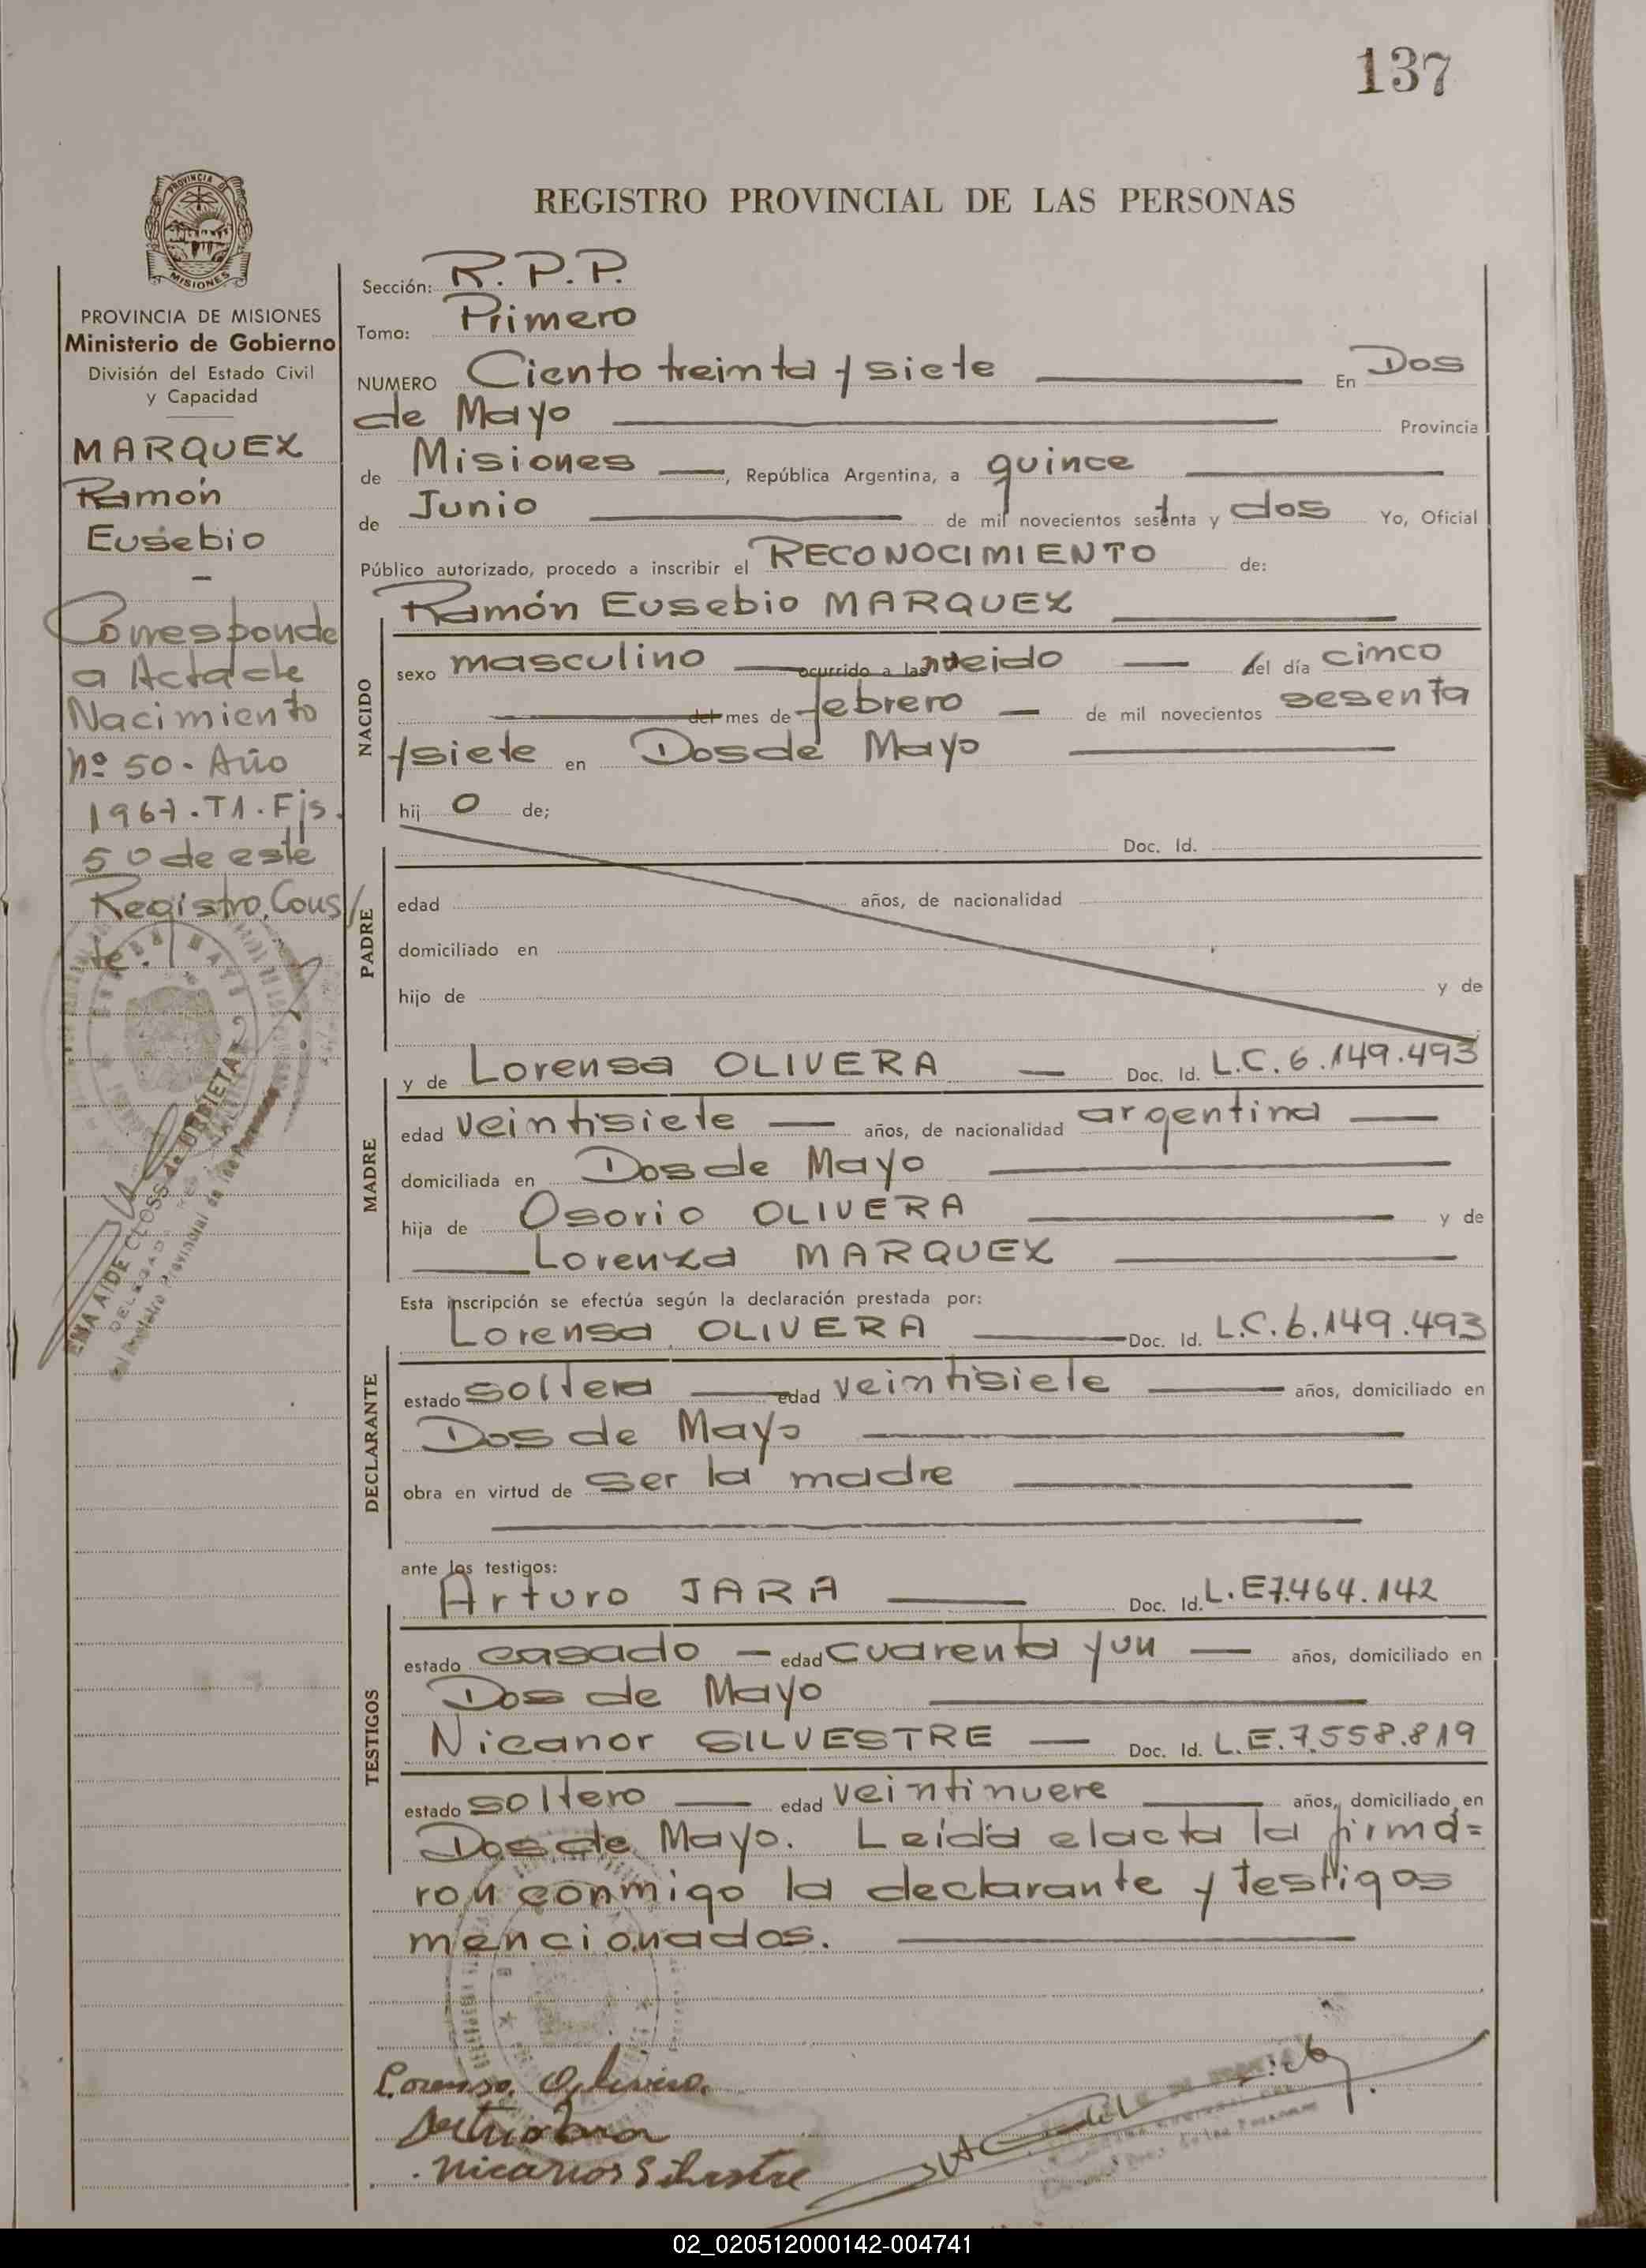 137
REGISTRO PROVINCIAL DE LAS PERSONAS
PROVINCIA DE MISIONES
Ministerio de Gobierno
División del Estado Civil
y Capacidad
MARQUEZ
Ramón
Eusebio
Corresponde
a Acta de
Nacimiento
nº 50 - Año
1967. T1. Fjs.
50 de este
Registro. Cons/
te.
EMA AIDE CLOSS de URRIETA
DELEGADA
Sección: R. P. P.
Tomo: Primero
NUMERO Ciento treinta y siete En Dos
de Mayo Provincia
de Misiones, República Argentina, a quince
de Junio de mil novecientos setenta y dos Yo, Oficial
Público autorizado, procedo a inscribir el RECONOCIMIENTO de:
NACIDO
Ramón Eusebio MARQUEZ
sexo masculino ocurrido a las nacido del día cinco
del mes de febrero de mil novecientos sesenta
y siete en Dos de Mayo
hij o de;
PADRE
Doc. Id.
edad años, de nacionalidad
domiciliado en
hijo de y de
MADRE
y de Lorensa OLIVERA Doc. Id. L.C. 6.149.493
edad veintisiete años, de nacionalidad argentina
domiciliada en Dos de Mayo
hija de Osorio OLIVERA y de
Lorenza MARQUEZ
Esta inscripción se efectúa según la declaración prestada por:
DECLARANTE
Lorensa OLIVERA Doc. Id. L.C. 6.149.493
estado soltera edad veintisiete años, domiciliado en
Dos de Mayo
obra en virtud de ser la madre
ante los testigos:
TESTIGOS
Arturo JARA Doc. Id. L.E 7.464.142
estado casado edad cuarenta y un años, domiciliado en
Dos de Mayo
Nicanor SILVESTRE Doc. Id. L.E. 7.558.819
estado soltero edad veintinueve años, domiciliado en
Dos de Mayo. Leída el acta la firma=
ron conmigo la declarante y testigos
mencionados.
Lorensa Olivera
Arturo Jara
Nicanor Silvestre
02_020512000142-004741